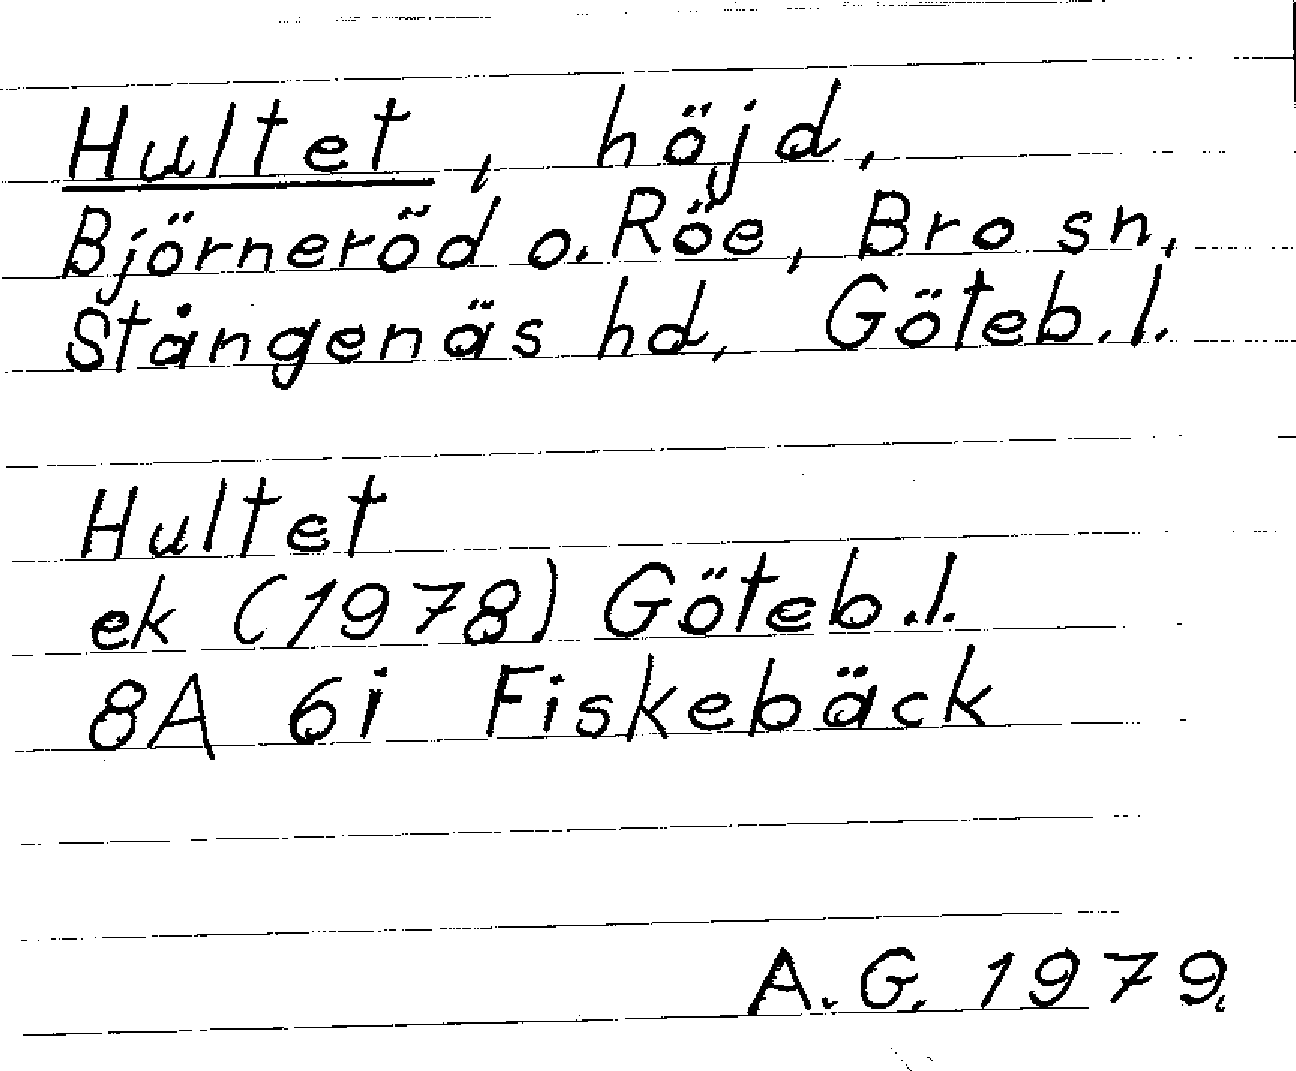 Hultet, höjd,
Björneröd o. Röe, Bro sn,
Stångenäs hd, Göteb. l.
Hultet
ek (1978) Göteb. l.
8A 6i Fiskebäck
A. G. 1979.